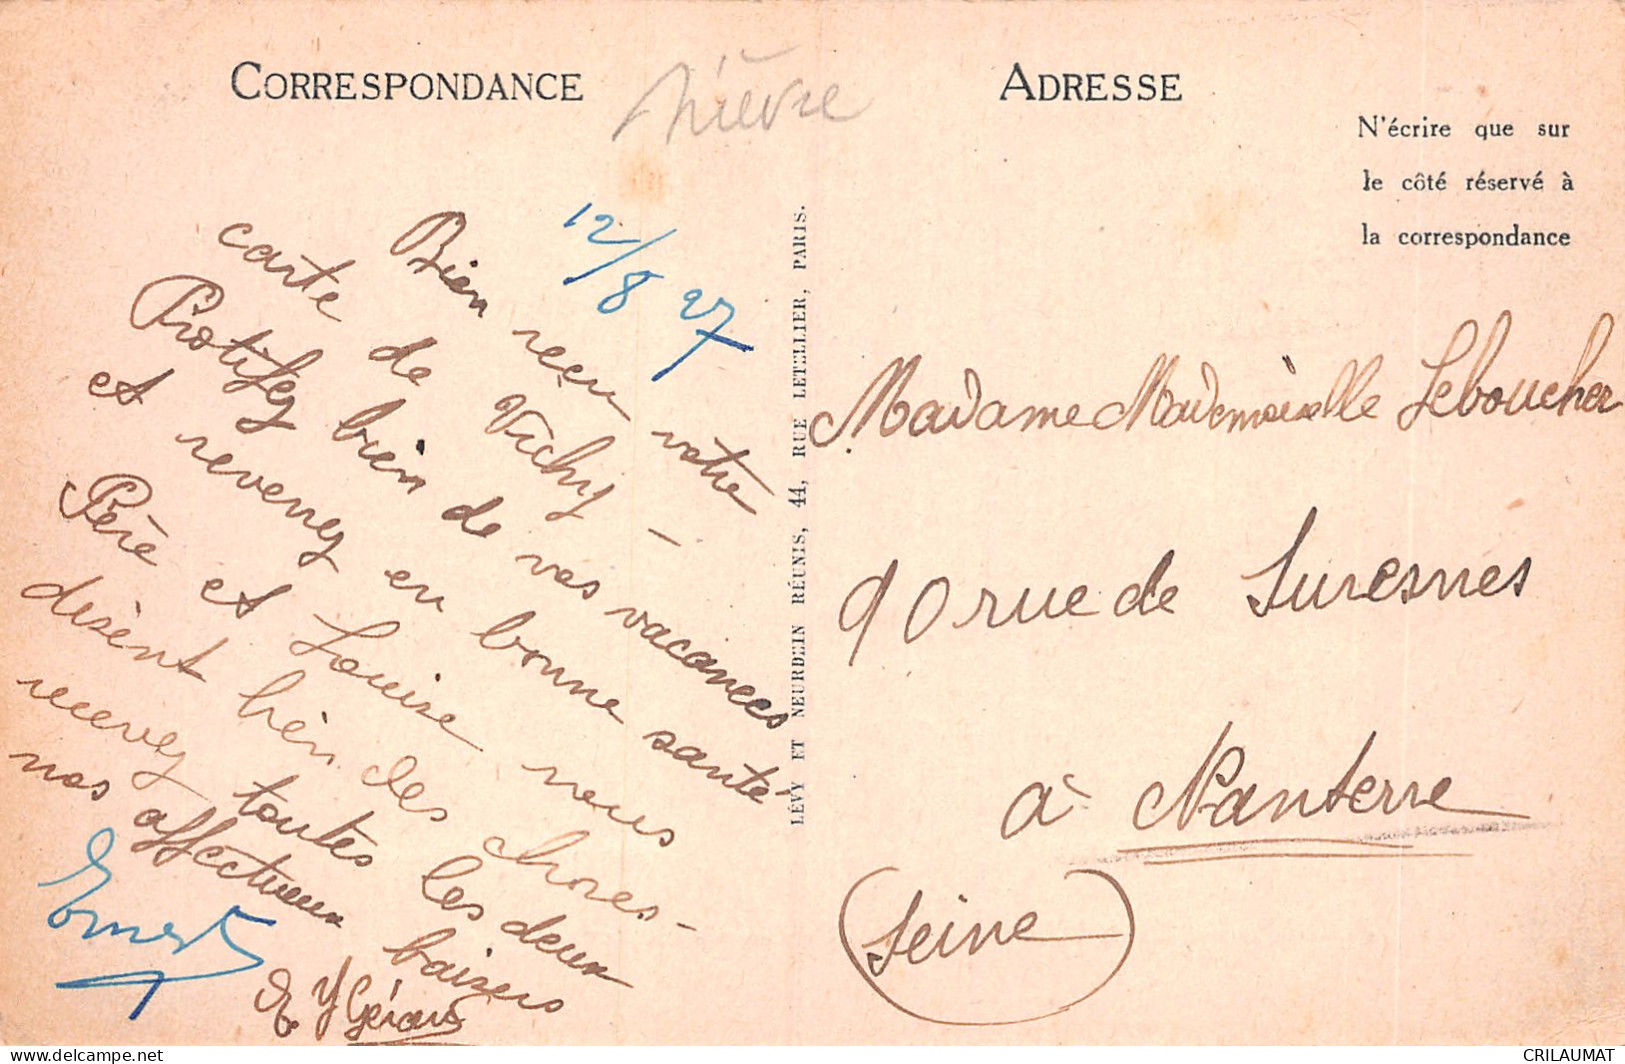 CORRESPONDANCE
Nièvre
12/8 27
Bien reçu votre
carte de Vichy –
Profitez bien de vos vacances
et revenez en bonne santé
Père et Louise vous
disent bien des choses –
recevez toutes les deux
nos affectueux baisers
Ernest
et Y Gérard
LÉVY ET NEURDEIN RÉUNIS, 44, RUE LETELLIER, PARIS.
ADRESSE
N'écrire que sur
le côté réservé à
la correspondance
Madame Mademoiselle Leboucher
90 rue de Suresnes
à Nanterre
(Seine)
delcampe.net
CRILAUMAT